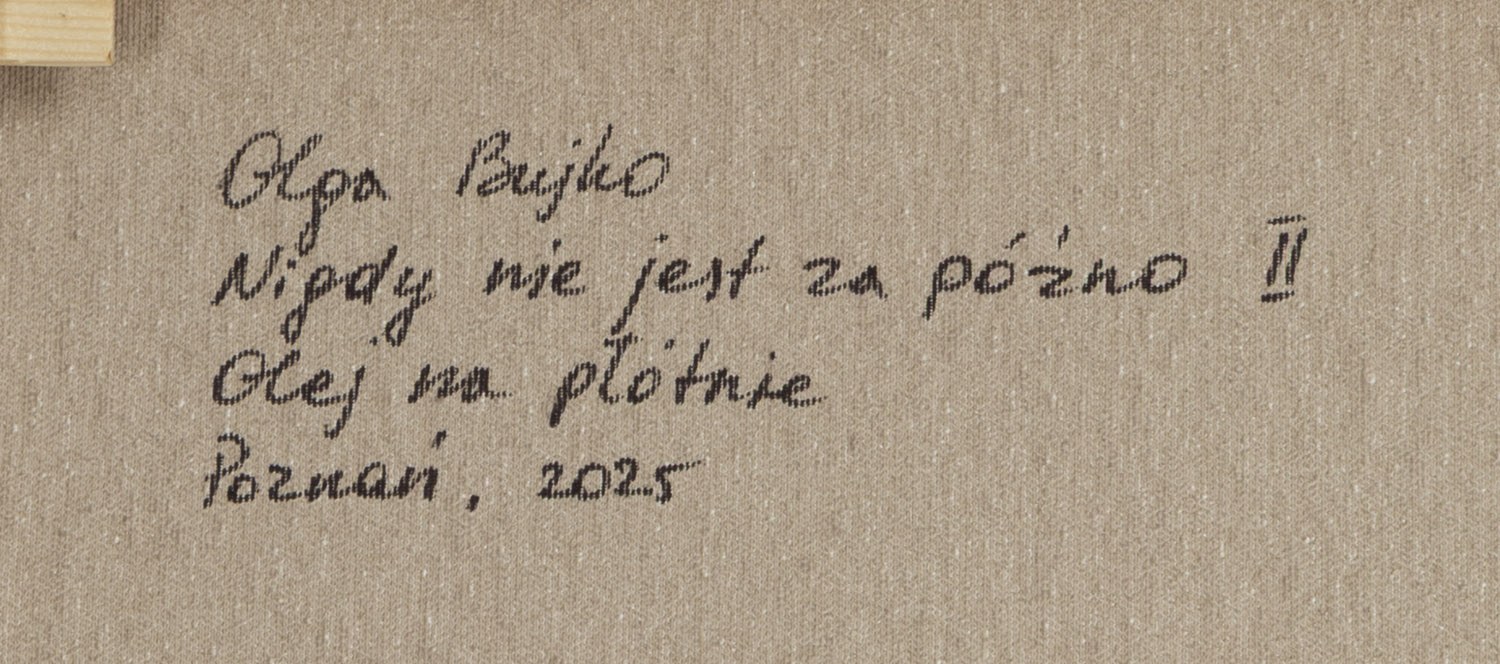 Olga Bujko
Nigdy nie jest za późno II
Olej na płótnie
Poznań, 2025